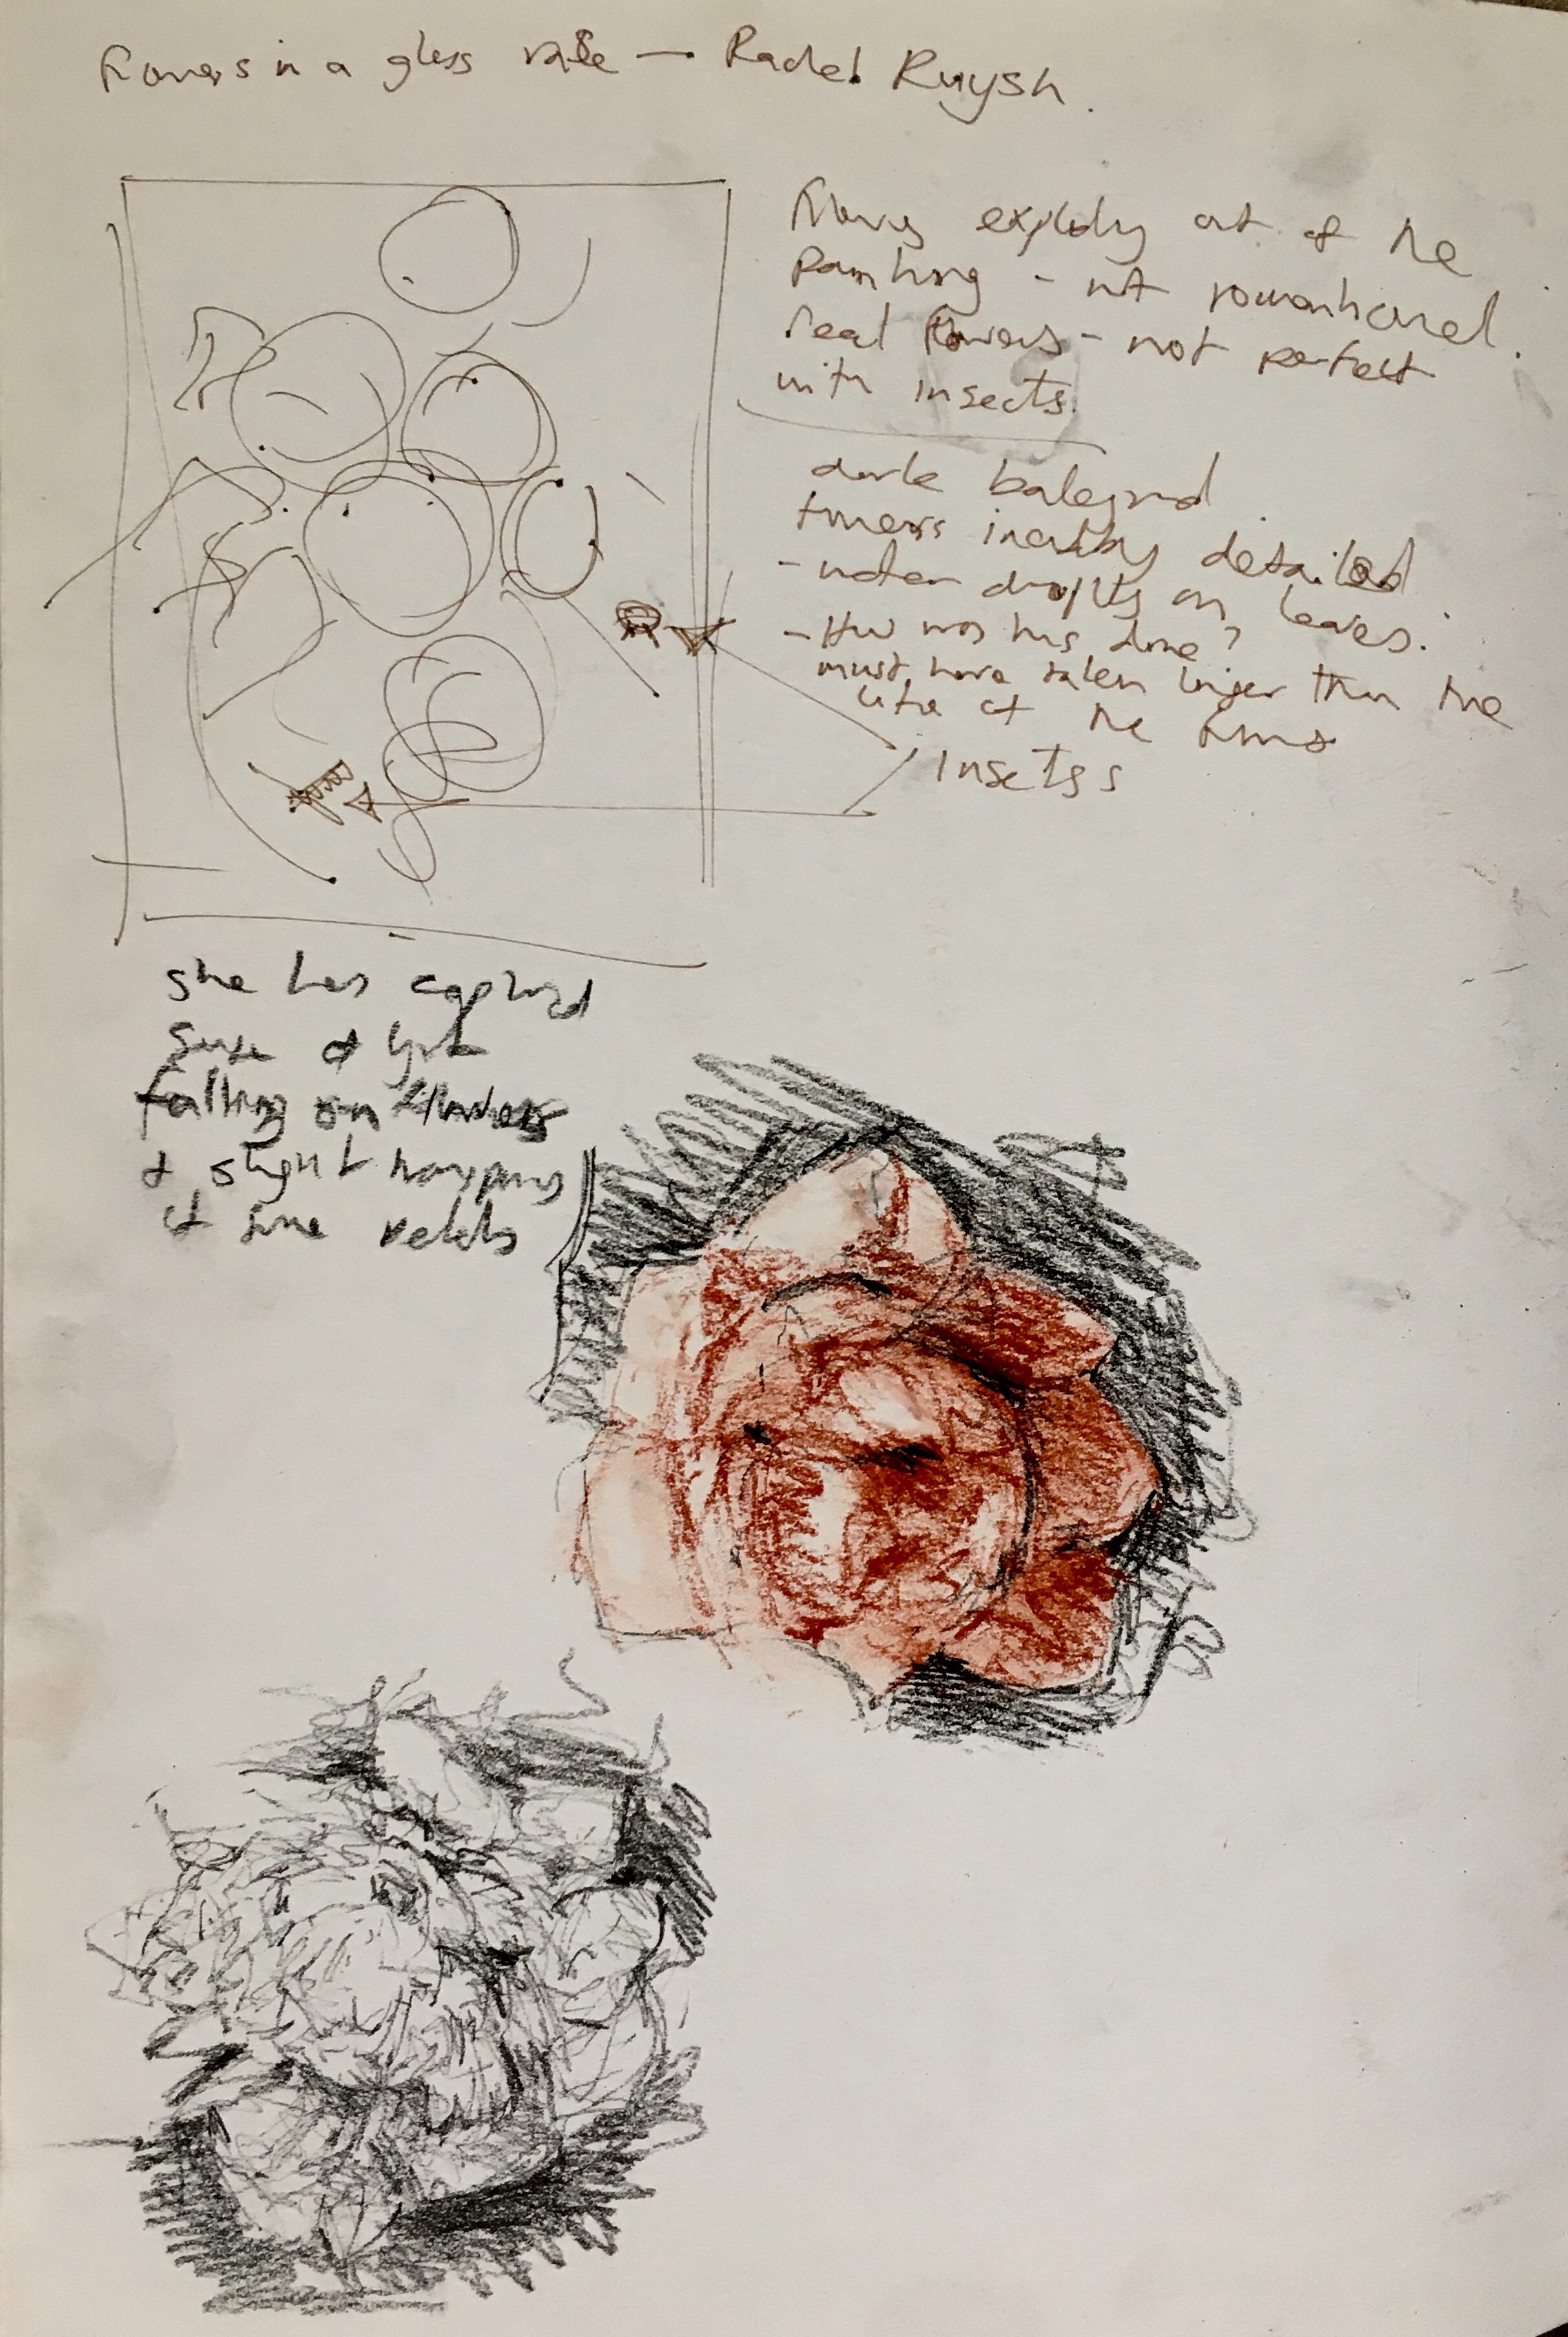 Flowers in a glass vase — Rachel Ruysh.
Flowers exploding out of the
painting - not romanticised.
real flowers - not perfect
with insects.
dark backgrond
flowers incredibly detailed
- water droplets on leaves.
- How was this done?
must have taken longer than the
life of the flowers
Insects s
she has captured
sense of light
falling on flowers
& slight drooping
of some petals